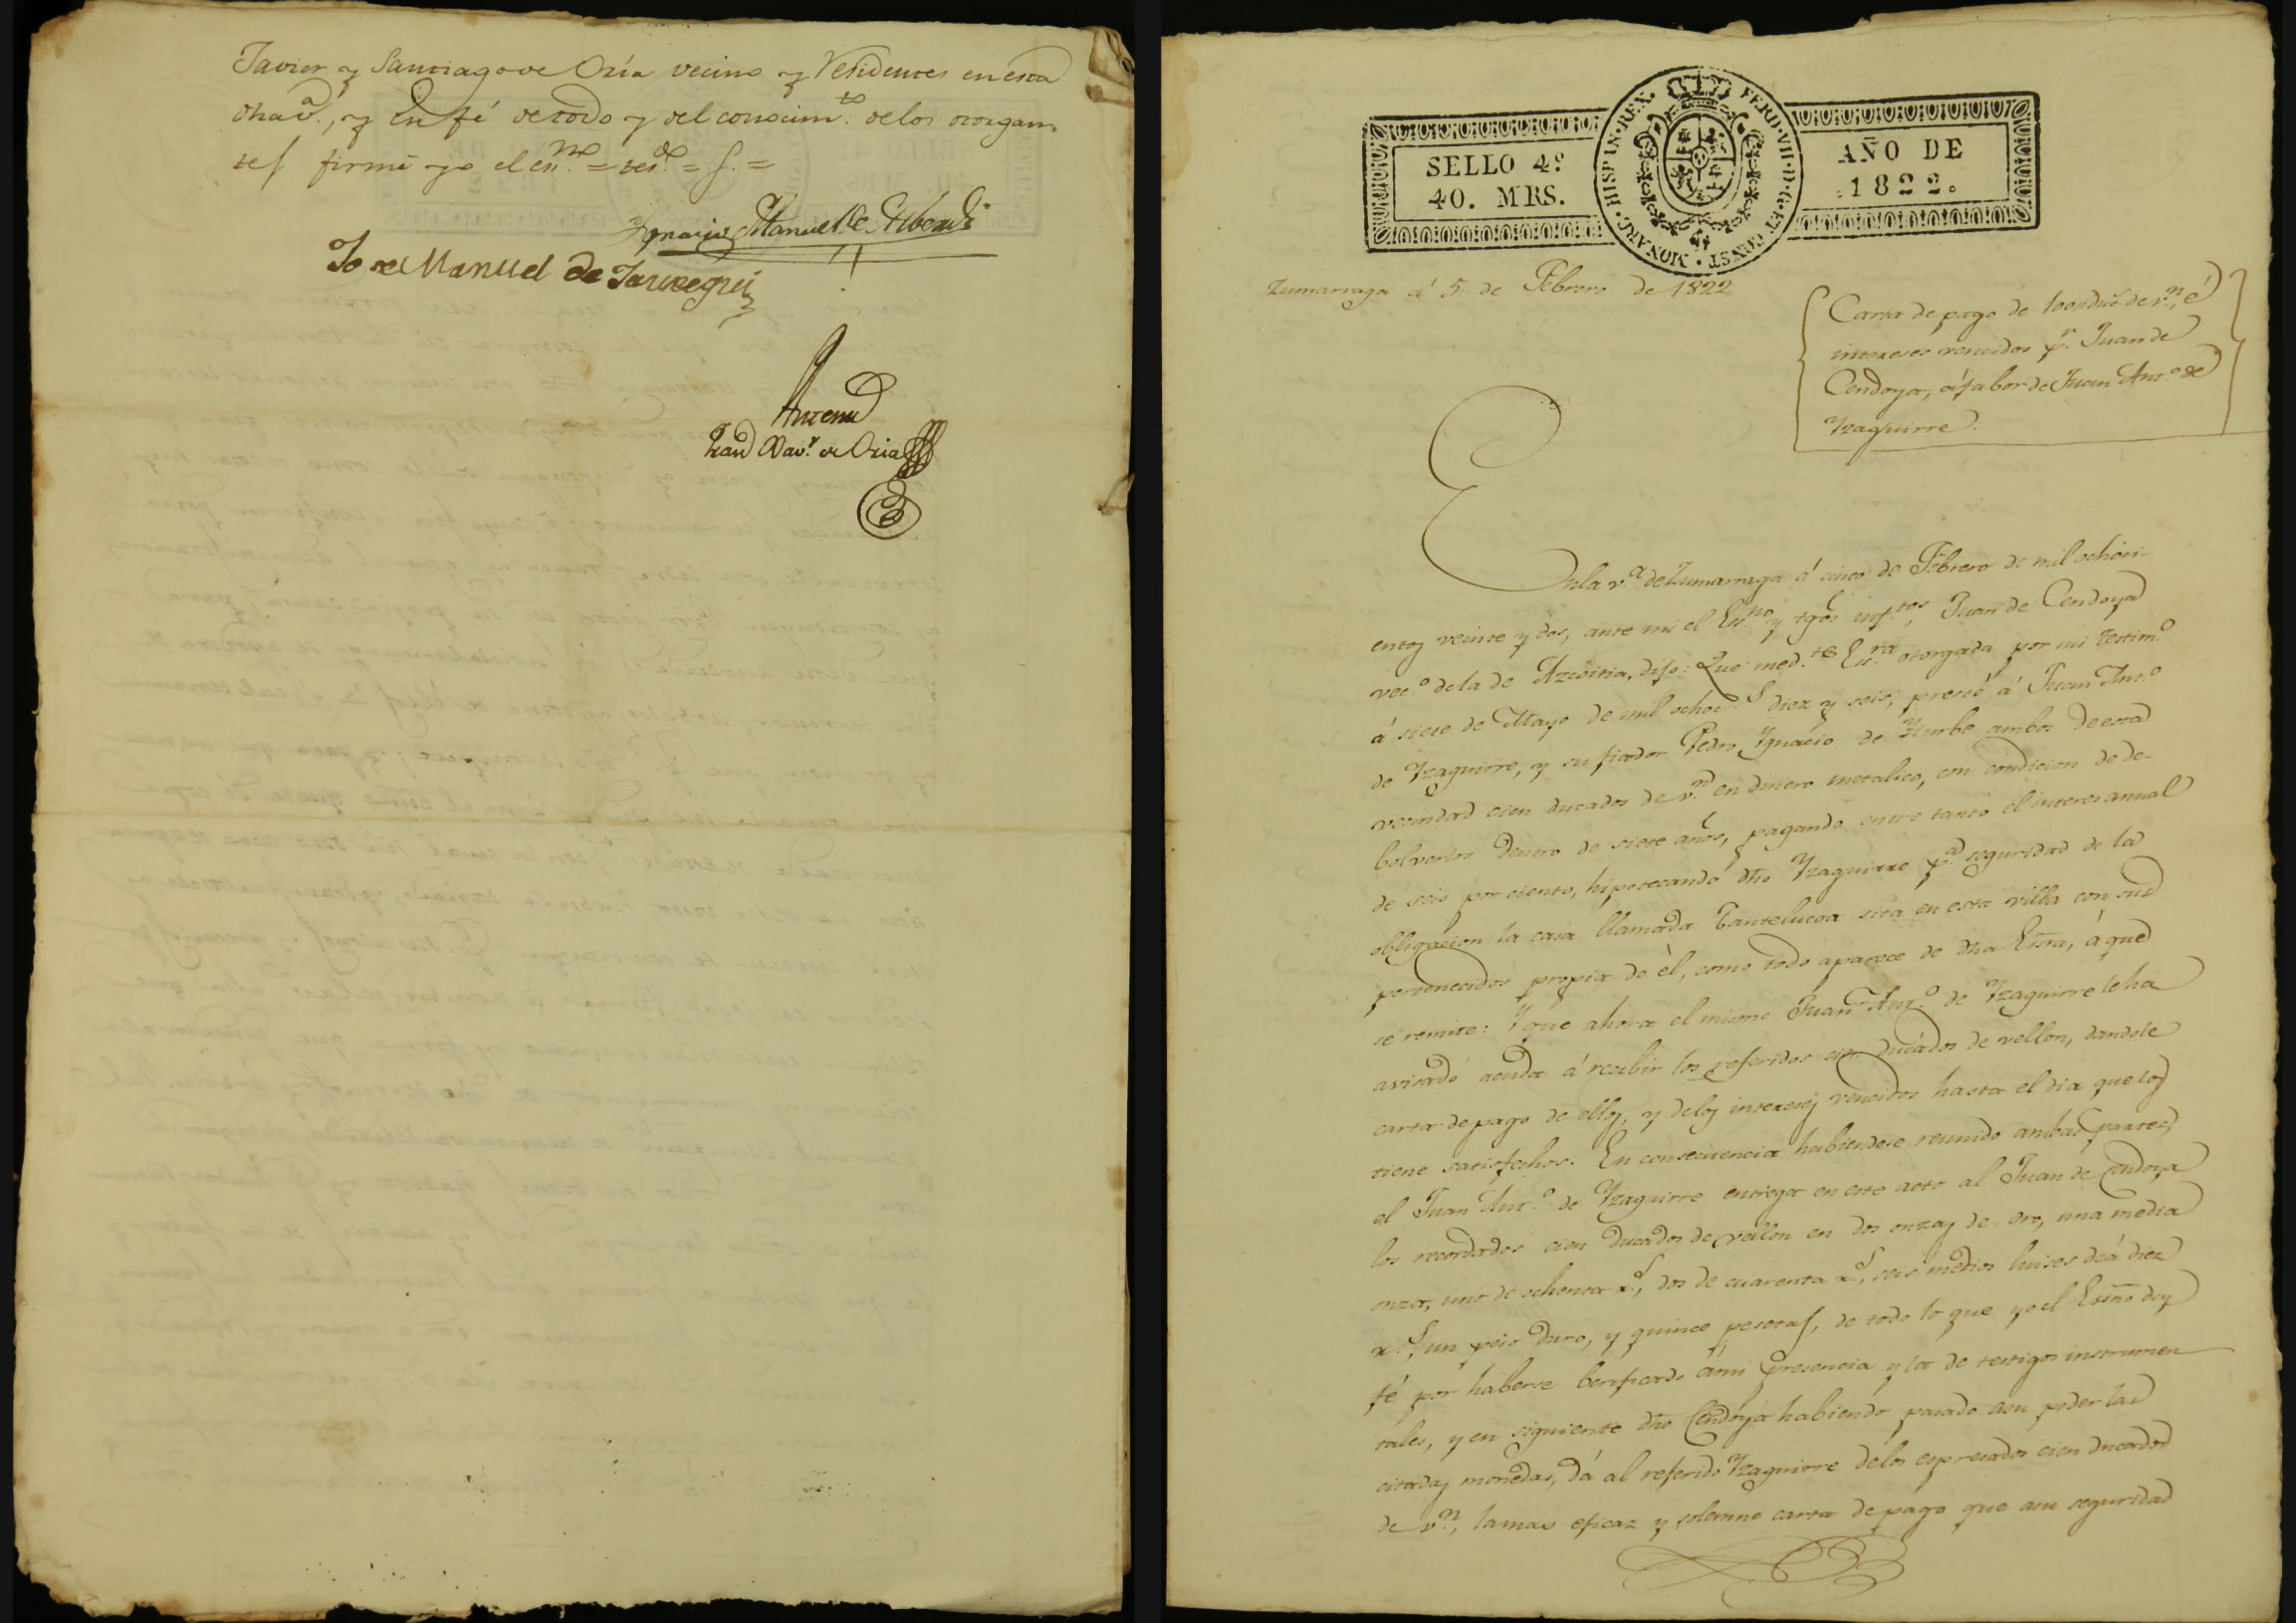 Javier y Santiago de Oria vecino y Residentes en esta
dha v.ª, y en fé de todo y del conocim.to de los otorgan-
tes firmé yo el es.no = tes.do = s. =
Ygnacio Manuel de Aribendi
Jose Manuel de Jauregui
Antemi
Fran.co Xav.r de Oria
SELLO 4º
40. MRS.
FERD·VII·D·G·ET CONST·MONARC·HISP IN·REX·
AÑO DE
1822.
Zumarraga á 5 de Febrero de 1822
Carta de pago de 100 duc.s de v.n, é
intereses vencidos p.r Juan de
Cendoya, á fabor de Juan Ant.o de
Yzaguirre.
En la v.ª de Zumarraga á cinco de Febrero de mil ochoci-
entos veinte y dos, ante mi el Es.no y tgos inf.tos, Juan de Cendoya
vec.o de la de Azcoitia, dijo: Que med.te Es.ra otorgada por mi testim.o
á siete de Mayo de mil ochoc.s diez y seis, prestó á Juan Ant.o
de Yzaguirre, y su fiador Pedro Ygnacio de Yturbe ambos de esta
vecindad cien ducados de v.n en dinero metalico, con condicion de de-
bolverlos dentro de siete años, pagando entre tanto el interes anual
de seis por ciento, hipotecando dho Yzaguirre p.ª seguridad de la
obligacion la casa llamada Cantelucoa sita en esta villa con sus
pertenecidos propia de èl, como todo aparece de dha Esra, á que
se remite: Y que ahora el mismo Juan Ant.o de Yzaguirre le ha
avisado acuda á recibir los referidos cien ducados de vellon, dandole
carta de pago de ellos, y delos intereses vencidos hasta el dia que los
tiene satisfechos. En consecuencia habiendose reunido ambas partes,
el Juan Ant.o de Yzaguirre entrega en este acto al Juan de Cendoya
los recordados cien ducados de vellon en dos onzas de oro, una media
onza, uno de ochenta r.s, dos de cuarenta r.s, seis medios luises de á diez
r.s, un peso duro, y quince pesetas, de todo lo que yo el Esno doy
fé por haberse berificado á mi presencia y la de testigos instrumen
tales, y en siguiente dho Cendoya habiendo pasado a su poder las
citadas monedas, dá al referido Yzaguirre delos espresados cien ducados
de v.n, la mas eficaz y solemne carta de pago que a su seguridad